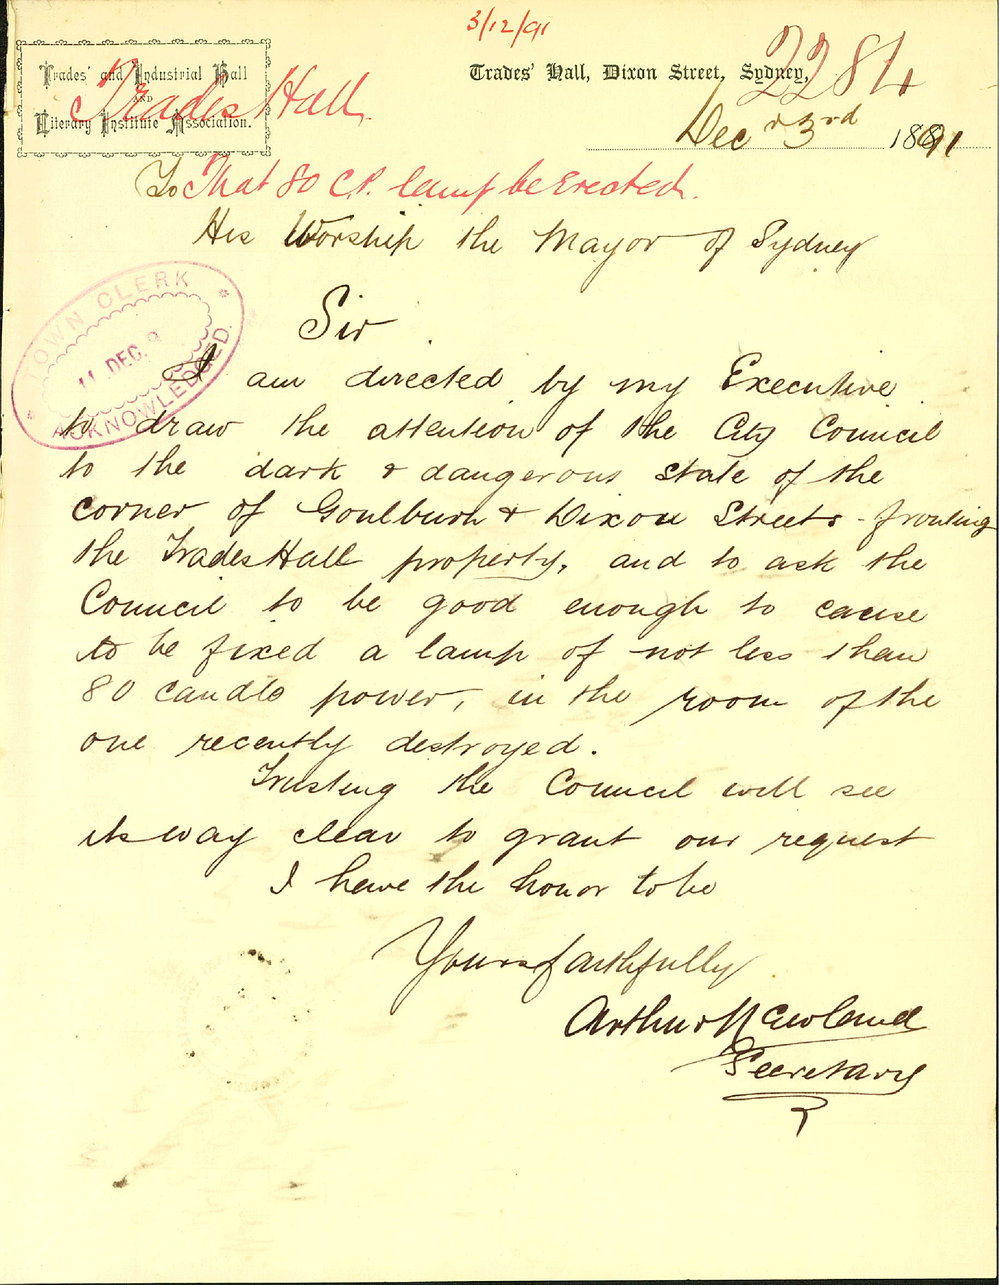 3/12/91
Trades' and Industrial Hall
AND
Literary Institute Association.
Trades Hall
Trades' Hall, Dixon Street, Sydney,
2284
Dec 3rd 1891
To That 80 C.P. lamp be Erected.
His Worship the Mayor of Sydney
Sir
TOWN CLERK
11 DEC. 9
ACKNOWLEDGED.
I am directed by my Executive
to draw the attention of the City Council
to the dark & dangerous state of the
corner of Goulburn & Dixon Streets - fronting
the Trades Hall property, and to ask the
Council to be good enough to cause
to be fixed a lamp of not less than
80 candle power, in the room of the
one recently destroyed.
Trusting the Council will see
its way clear to grant our request
I have the honor to be
Yours faithfully
Arthur
Secretary